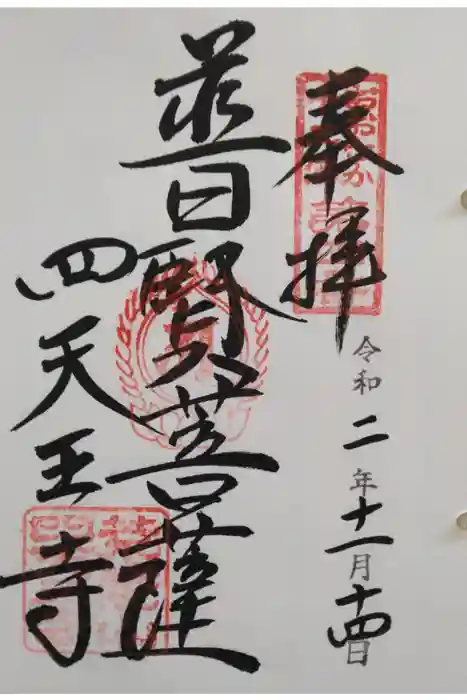 奉拝
令和二年十一月十四日
普賢菩薩
四天王寺